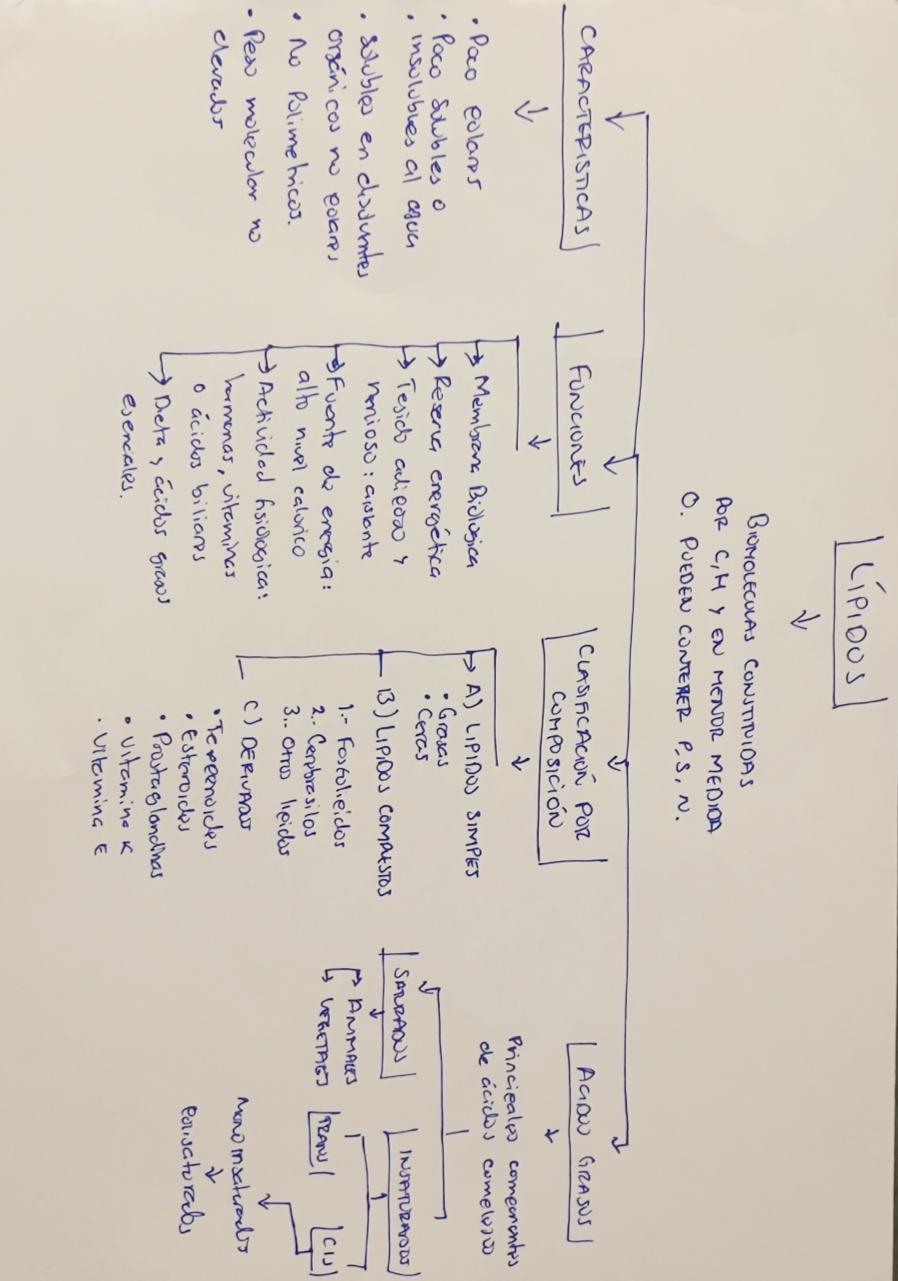 LÍPIDOS
BIOMOLECULAS CONSTITUIDAS
POR C, H Y EN MENOR MEDIDA
O. PUEDEN CONTENER P, S, N.
CARACTERISTICAS
• Poco polares
• Poco solubles o
insolubles al agua
• solubles en disolventes
orgánicos no polares
• No Polimetricos.
• Peso molecular no
elevados
FUNCIONES
Membrana Biologica
Reserva energética
Tejido adiposo y
nervioso: aislante
Fuente de energia:
alto nivel calorico
Actividad fisiologica:
hormonas, vitaminas
o ácidos biliares
Dieta y ácidos grasos
esenciales.
CLASIFICACIÓN POR
COMPOSICIÓN
A) LIPIDOS SIMPLES
• Grasas
• Ceras
B) LIPIDOS COMPUESTOS
1.- Fosfolípidos
2.- Cerebrasilos
3.. Otros lípidos
C) DERIVADOS
• Terpenoides
• Esteroides
• Prostaglandinas
• Vitamina K
• Vitamina E
ACIDOS GRASOS
Principales componentes
de ácidos
SATURADOS
ANIMALES
VEGETALES
INSATURADOS
TRANS
CIS
Monoinsaturados
Polisaturados